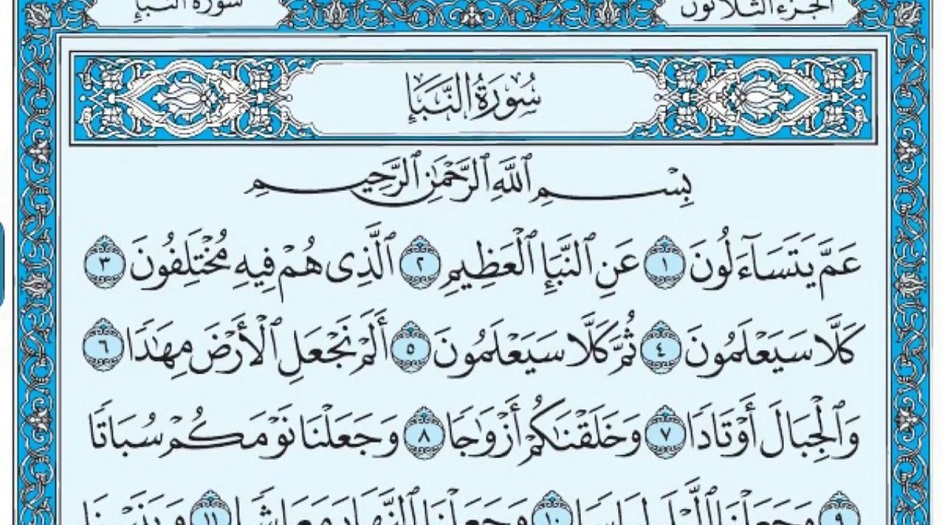 الجزء الثلاثون
سورة النبإ
سُورَةُ النَّبَإِ
بِسْمِ ٱللَّهِ ٱلرَّحْمَٰنِ ٱلرَّحِيمِ
عَمَّ يَتَسَآءَلُونَ ١ عَنِ ٱلنَّبَإِ ٱلْعَظِيمِ ٢ ٱلَّذِى هُمْ فِيهِ مُخْتَلِفُونَ ٣
كَلَّا سَيَعْلَمُونَ ٤ ثُمَّ كَلَّا سَيَعْلَمُونَ ٥ أَلَمْ نَجْعَلِ ٱلْأَرْضَ مِهَٰدًا ٦
وَٱلْجِبَالَ أَوْتَادًا ٧ وَخَلَقْنَٰكُمْ أَزْوَٰجًا ٨ وَجَعَلْنَا نَوْمَكُمْ سُبَاتًا
٩ وَجَعَلْنَا ٱلَّيْلَ لِبَاسًا ١٠ وَجَعَلْنَا ٱلنَّهَارَ مَعَاشًا ١١ وَبَنَيْنَا